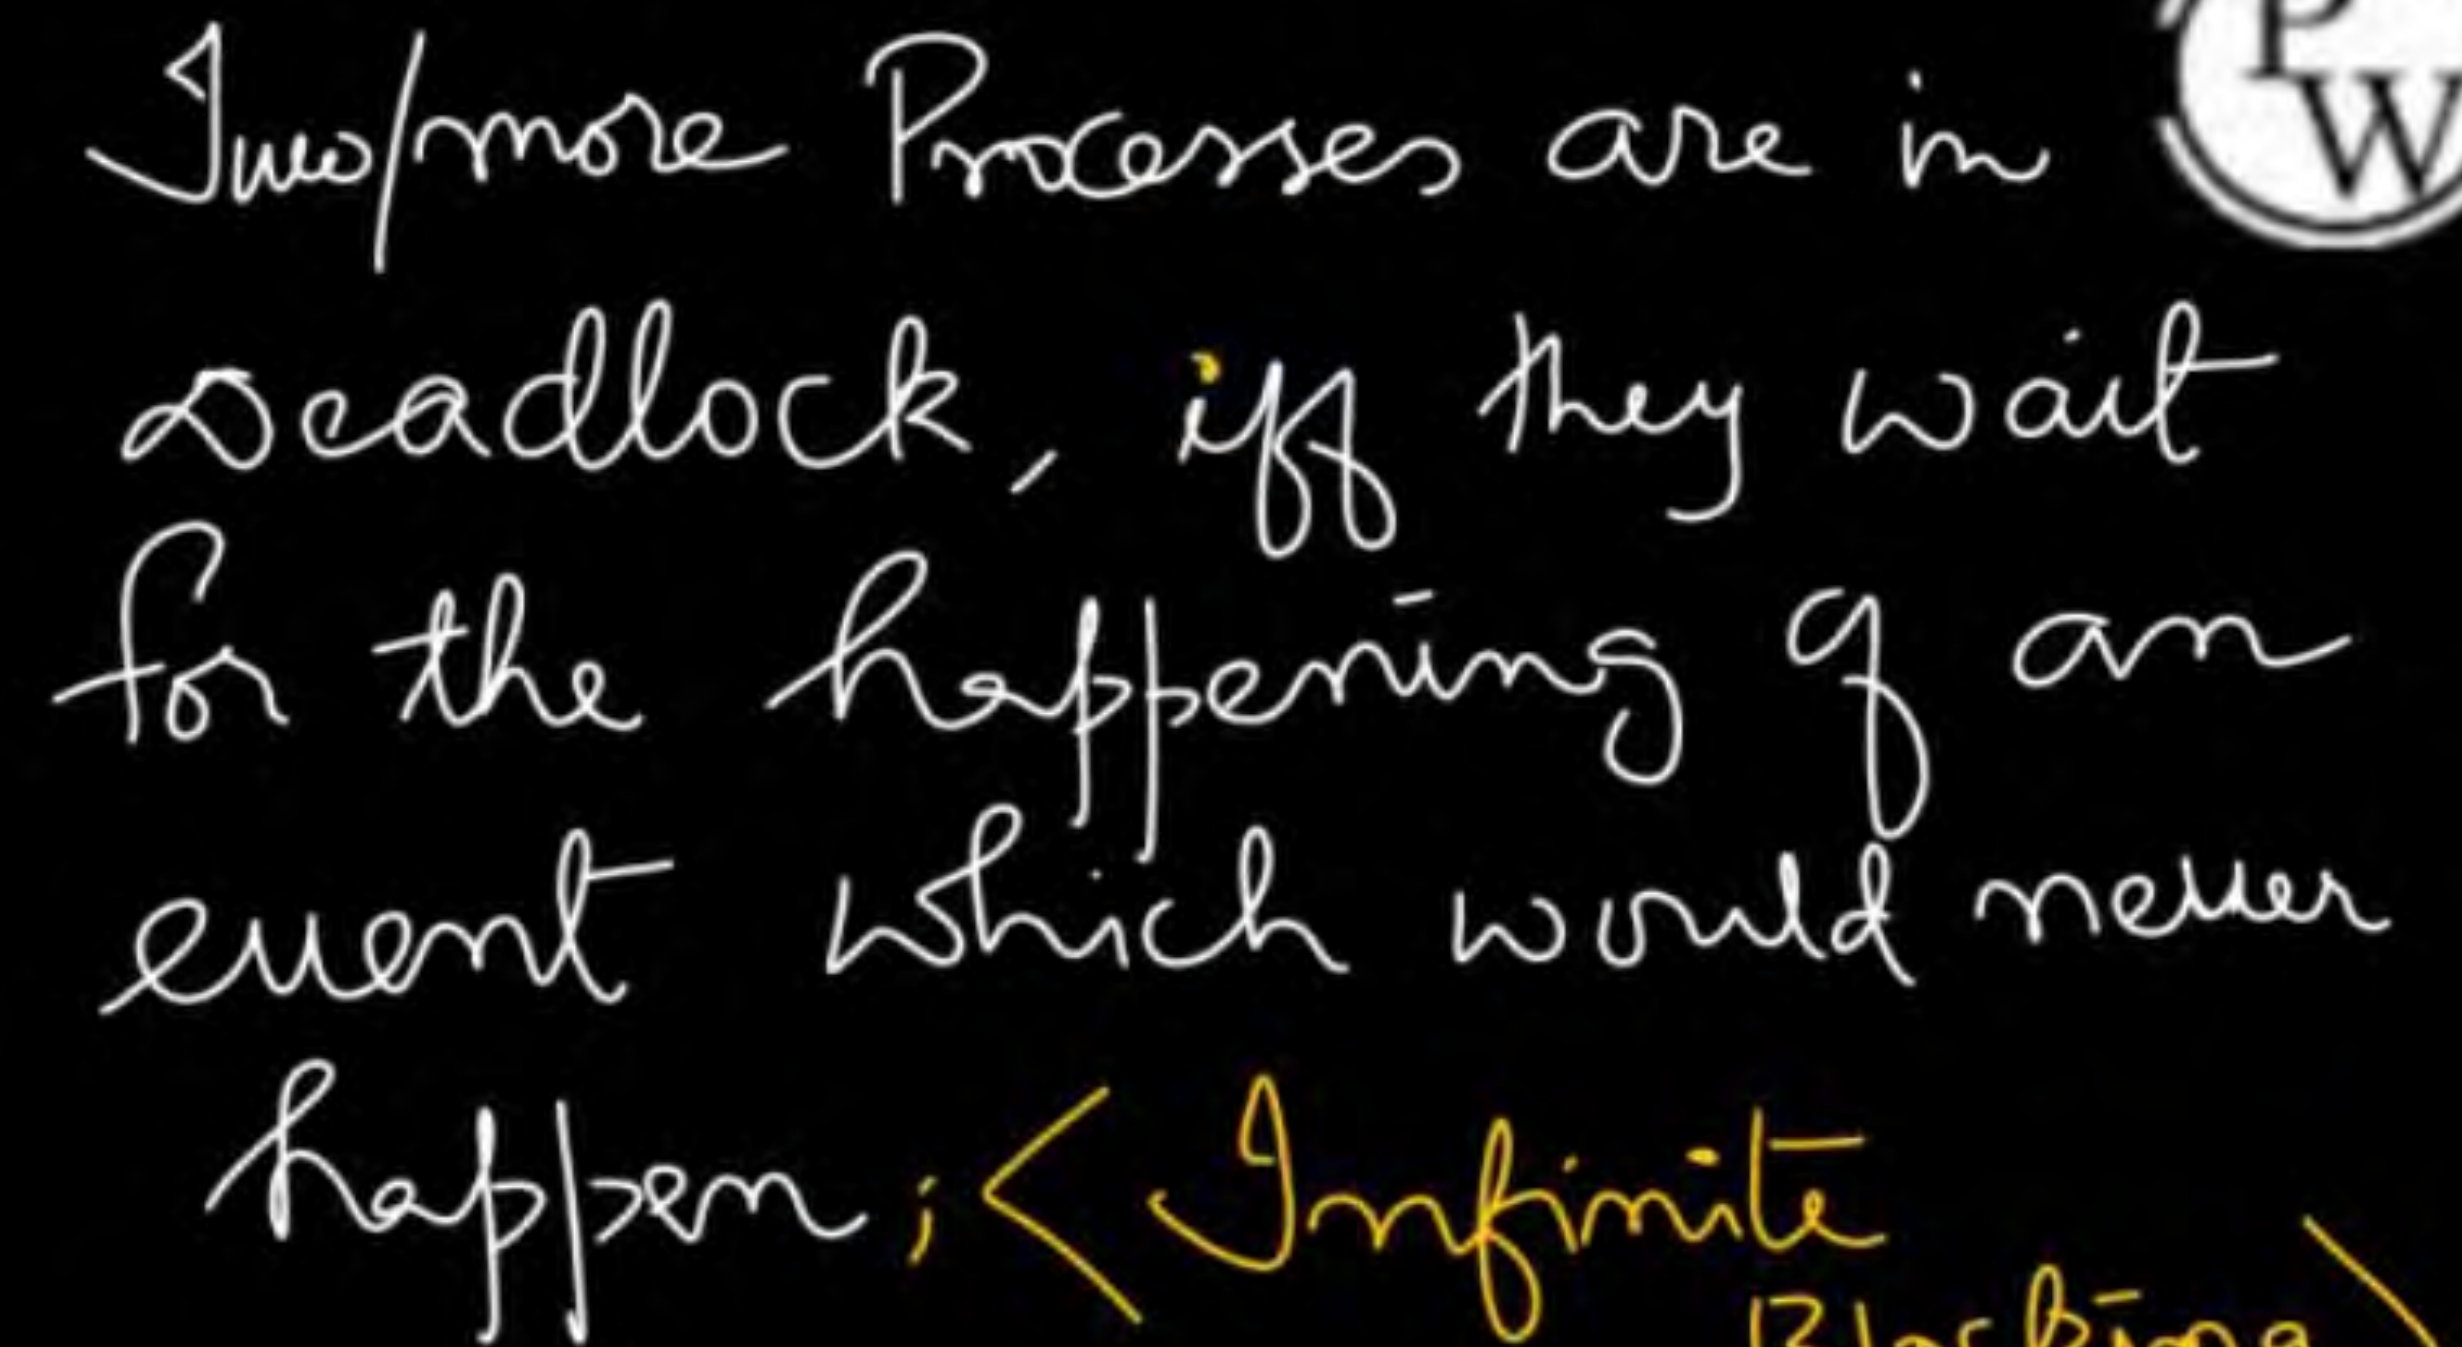 Two/more Processes are in
PW
Deadlock, iff they wait
for the happening of an
event which would never
happen ; < Infinite
Blocking >